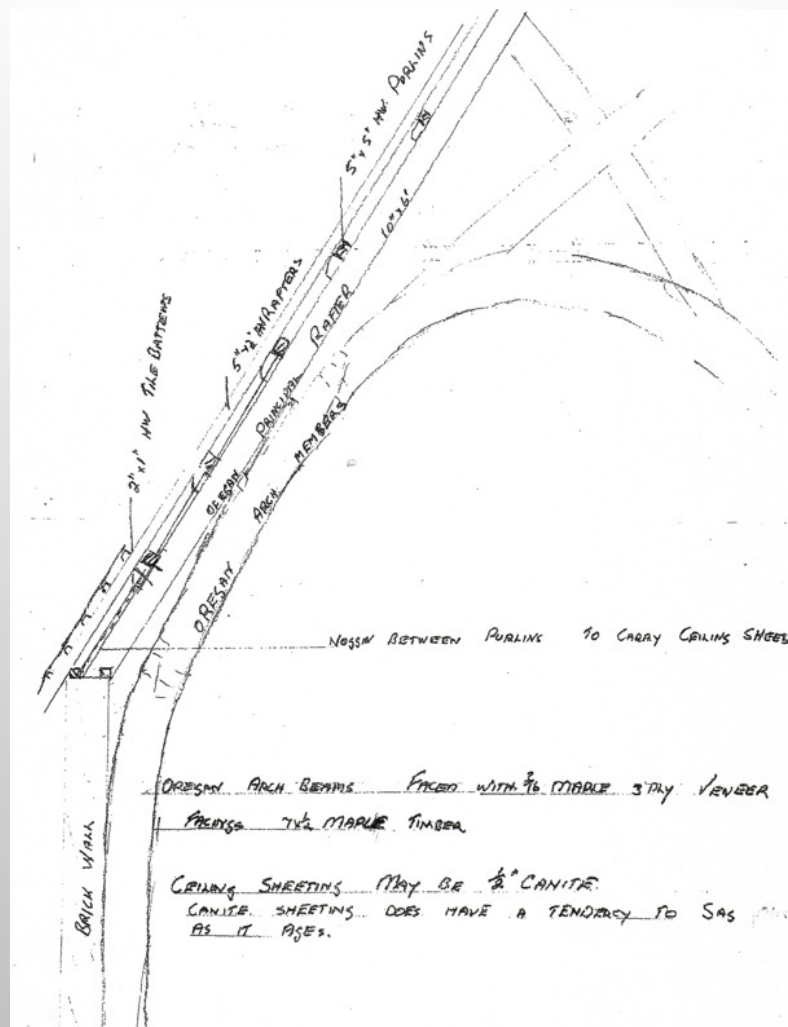 5" x 5" HW. PURLINS
10" x 6"
5" x 2" HW RAFTERS
2" x 1" HW TILE BATTENS
OREGAN PRINCIPAL RAFTER
OREGAN ARCH MEMBERS
NOGGIN BETWEEN PURLINS TO CARRY CEILING SHEE
OREGAN ARCH BEAMS FACED WITH 3/16 MAPLE 3 PLY VENEER
FACINGS 7x½ MAPLE TIMBER
BRICK WALL
CEILING SHEETING MAY BE ½" CANITE.
CANITE SHEETING DOES HAVE A TENDERCY TO SAG
AS IT AGES.